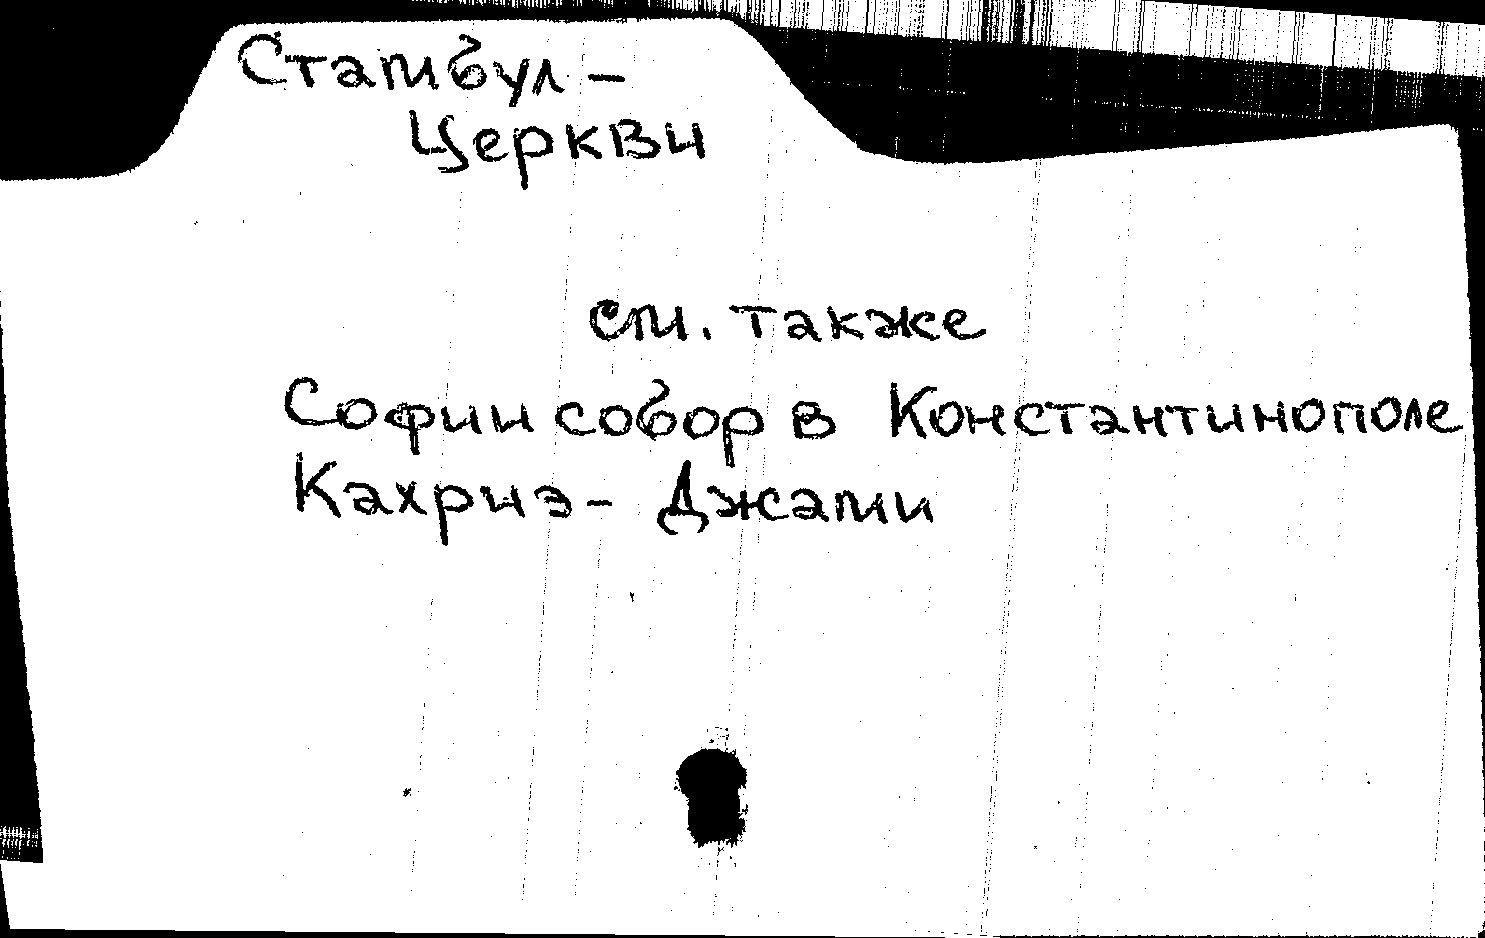 Стамбул –
Церкви
см. также
Софии собор в Константинополе
Кахриэ - Джами